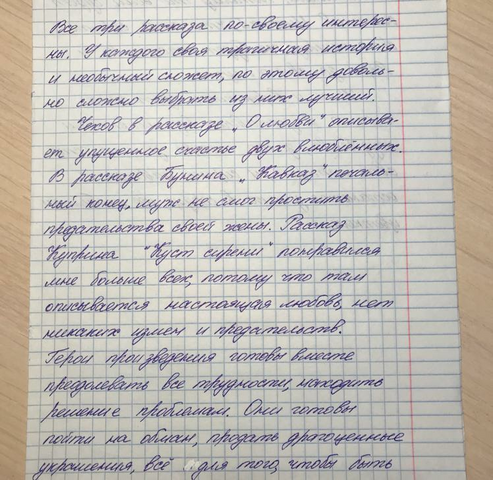 Все три рассказа по-своему интерес-
ны. У каждого своя трагичная история
и необычный сюжет, по этому доволь-
но сложно выбрать из них лучший.
Чехов в рассказе „О любви" описыва-
ет упущенное счастье двух влюблённых.
В рассказе Бунина „Кавказ" печаль-
ный конец, муж не смог простить
предательства своей жены. Рассказ
Куприна "Куст сирени" понравился
мне больше всех, потому что там
описывается настоящая любовь, нет
никаких измен и предательств.
Герои произведения готовы вместе
преодолевать все трудности, находить
решение проблемам. Они готовы
пойти на обман, продать драгоценные
украшения, всё для того, чтобы быть